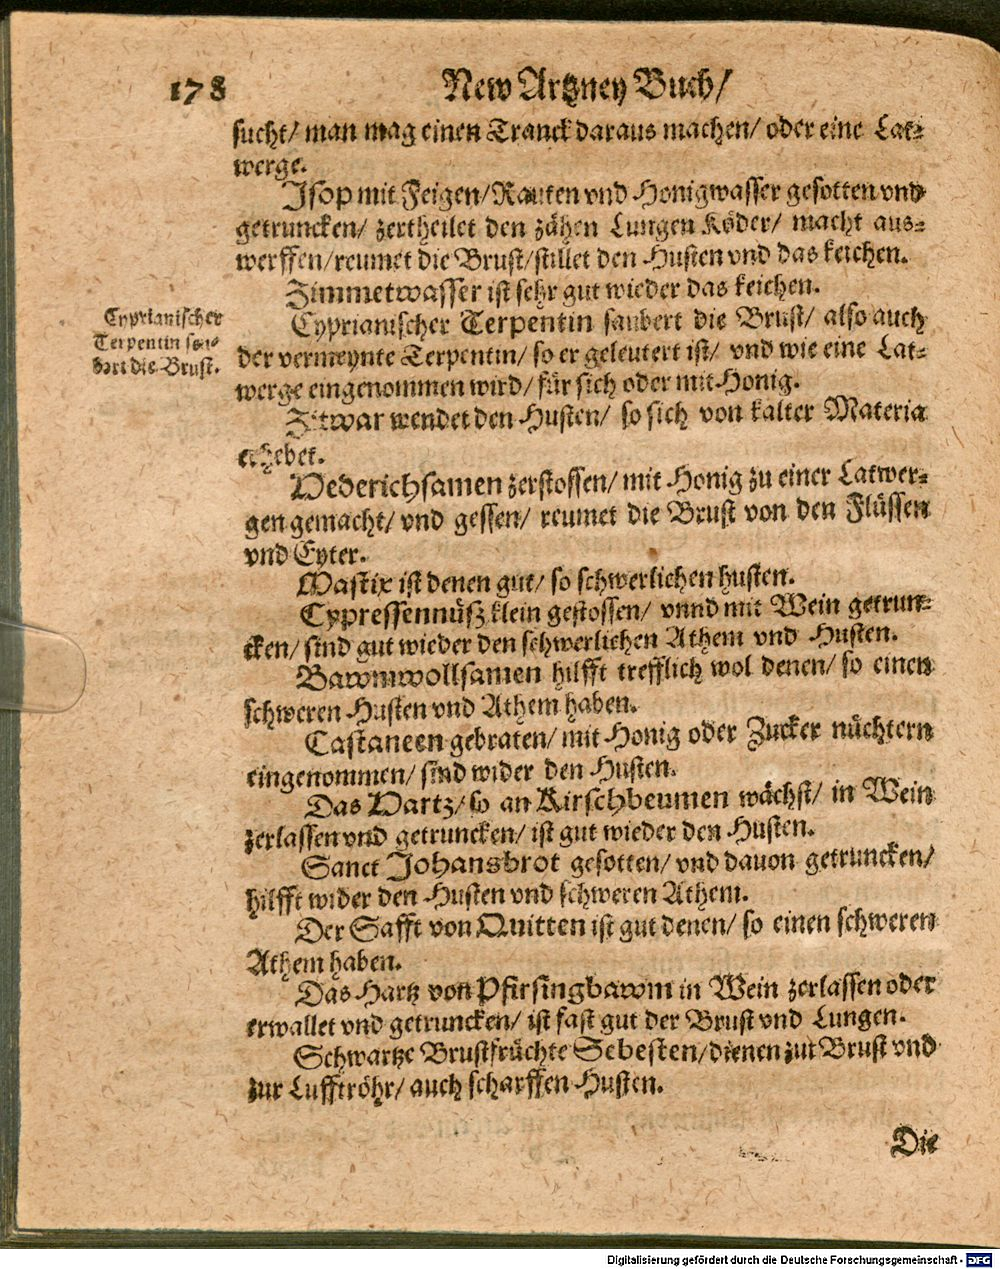 178
New Artzney Buch/
sucht/ man mag einen Tranck daraus machen/ oder eine Lat⸗
werge.
Jsop mit Feigen/Rauten vnd Honigwasser gesotten vnd
getruncken/ zertheilet den zähen Lungen Köder/ macht aus⸗
werffen/reumet die Brust/stillet den Husten vnd das keichen.
Zimmetwasser ist sehr gut wieder das keichen.
Cyprianischer
Terpentin seu⸗
bert die Brust.
Cyprianischer Terpentin saubert die Brust/ also auch
der vermeynte Terpentin/ so er geleutert ist/ vnd wie eine Lat⸗
werge eingenommen wird/ für sich oder mit Honig.
Zitwar wendet den Husten/ so sich von kalter Materia
erhebet.
Hederichsamen zerstossen/ mit Honig zu einer Latwer⸗
gen gemacht/ vnd gessen/ reumet die Brust von den Flüssen
vnd Eyter.
Mastix ist denen gut/ so schwerlichen husten.
Cypressennüß klein gestossen/ vnnd mit Wein getrun⸗
cken/ sind gut wieder den schwerlichen Athem vnd Husten.
Bawmwollsamen hilfft trefflich wol denen/ so einen
schweren Husten vnd Athem haben.
Castaneen gebraten/ mit Honig oder Zucker nüchtern
eingenommen/ sind wider den Husten.
Das Hartz/ so an Kirschbeumen wächst/ in Wein
zerlassen vnd getruncken/ ist gut wieder den Husten.
Sanct Johansbrot gesotten/ vnd dauon getruncken/
hilfft wider den Husten vnd schweren Athem.
Der Safft von Quitten ist gut denen/ so einen schweren
Athem haben.
Das Hartz von Pfirsingbawm in Wein zerlassen oder
erwallet vnd getruncken/ ist fast gut der Brust vnd Lungen.
Schwartze Brustfrüchte Sebesten/dienen zur Brust vnd
zur Lufftröhr/ auch scharffen Husten.
Die
Digitalisierung gefördert durch die Deutsche Forschungsgemeinschaft - DFG